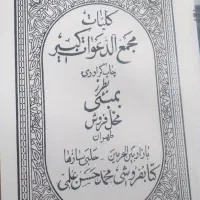 کلیات
مجمع الدعوات کبیر
چاپ گراوری
بطرز
بمبئی
محل فروش
طهران
بازار بین الحرمین - جلب
کتابفروشی محمد حسن علمی